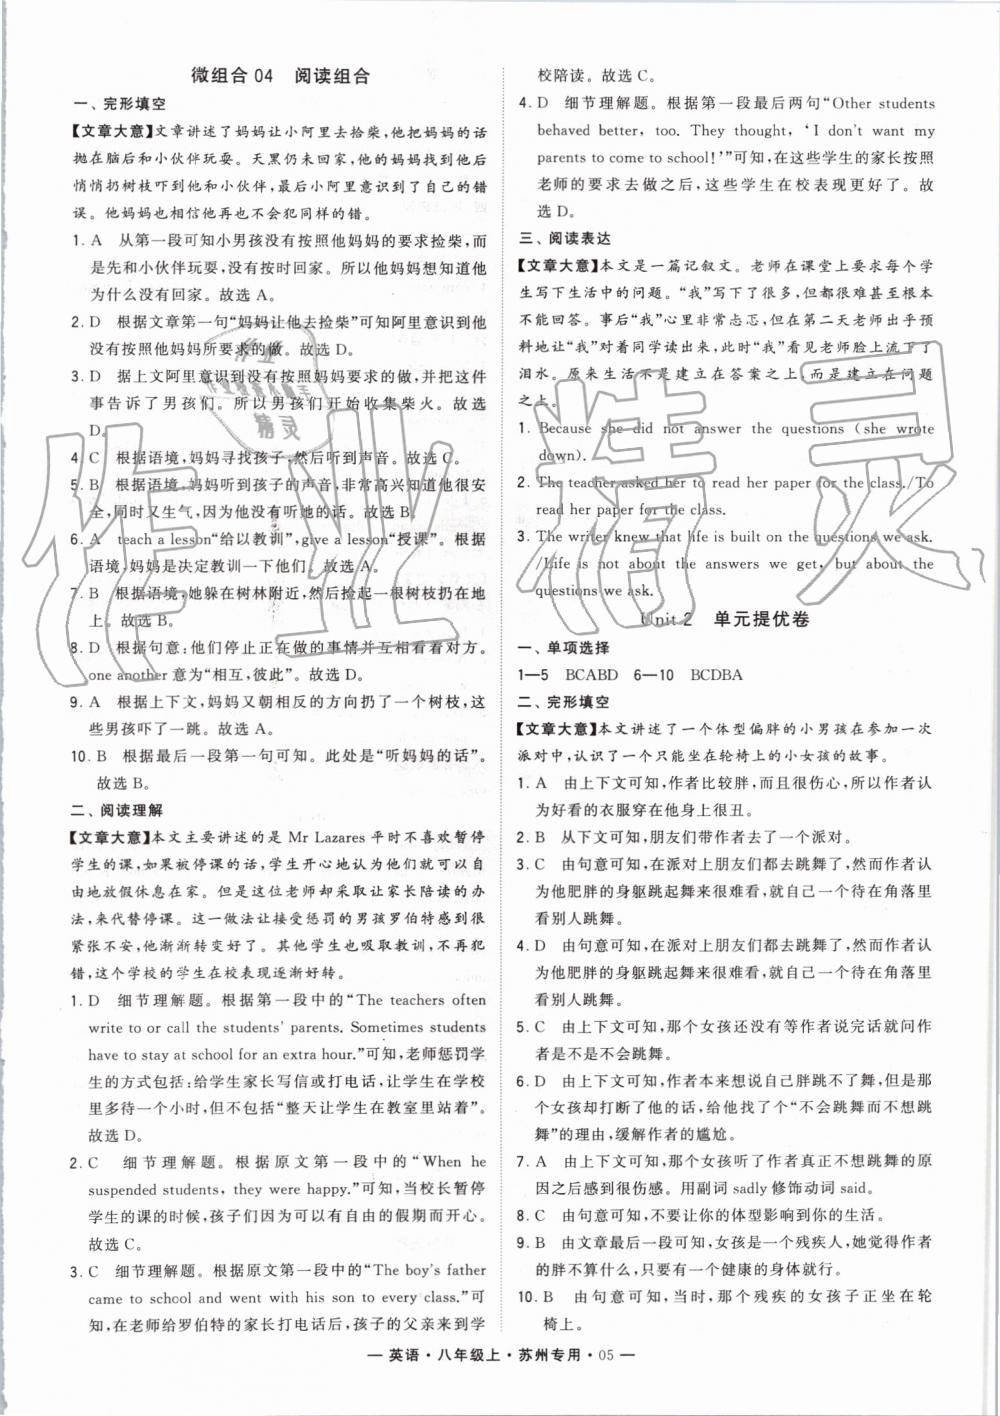 微组合04 阅读组合
一、完形填空
【文章大意】文章讲述了妈妈让小阿里去拾柴,他把妈妈的话
抛在脑后和小伙伴玩耍。天黑仍未回家,他的妈妈找到他后
悄悄扔树枝吓到他和小伙伴,最后小阿里意识到了自己的错
误。他妈妈也相信他再也不会犯同样的错。
1. A 从第一段可知小男孩没有按照他妈妈的要求捡柴,而
是先和小伙伴玩耍,没有按时回家。所以他妈妈想知道他
为什么没有回家。故选A。
2. D 根据文章第一句“妈妈让他去捡柴”可知阿里意识到他
没有按照他妈妈所要求的做。故选D。
3. D 据上文阿里意识到没有按照妈妈要求的做,并把这件
事告诉了男孩们。所以男孩们开始收集柴火。故选
D。
4. C 根据语境,妈妈寻找孩子,然后听到声音。故选C。
5. B 根据语境,妈妈听到孩子的声音,非常高兴知道他很安
全,同时又生气,因为他没有听她的话。故选B。
6. A teach a lesson“给以教训”,give a lesson“授课”。根据
语境,妈妈是决定教训一下他们。故选A。
7. B 根据语境,她躲在树林附近,然后捡起一根树枝扔在地
上。故选B。
8. D 根据句意:他们停止正在做的事情并互相看了看。
one another 意为“相互,彼此”。故选D。
9. A 根据上下文,妈妈又朝相反的方向扔了一个树枝,这
些男孩吓了一跳。故选A。
10. B 根据最后一段第一句可知。此处是“听妈妈的话”。
故选B。
二、阅读理解
【文章大意】本文主要讲述的是 Mr Lazares 平时不喜欢暂停
学生的课,如果被停课的话,学生开心地认为他们就可以自
由地放假休息在家。但是这位老师却采取让家长陪读的办
法,来代替停课。这一做法让接受惩罚的男孩罗伯特感到很
紧张不安,他渐渐转变好了。其他学生也吸取教训,不再犯
错,这个学校的学生在校表现逐渐好转。
1. D 细节理解题。根据第一段中的“The teachers often
write to or call the students' parents. Sometimes students
have to stay at school for an extra hour.”可知,老师惩罚学
生的方式包括:给学生家长写信或打电话,让学生在学校
里多待一个小时,但不包括“整天让学生在教室里站着”。
故选D。
2. C 细节理解题。根据原文第一段中的“When he
suspended students, they were happy.”可知,当校长暂停
学生的课的时候,孩子们因为可以有自由的假期而开心。
故选C。
3. C 细节理解题。根据原文第一段中的“The boy's father
came to school and went with his son to every class.”可
知,在老师给罗伯特的家长打电话后,孩子的父亲来到学
校陪读。故选C。
4. D 细节理解题。根据第一段最后两句“Other students
behaved better, too. They thought, ‘I don't want my
parents to come to school!’”可知,在这些学生的家长按照
老师的要求去做之后,这些学生在校表现更好了。故
选D。
三、阅读表达
【文章大意】本文是一篇记叙文。老师在课堂上要求每个学
生写下生活中的问题。“我”写下了很多,但却很难甚至根本
不能回答。事后“我”心里非常忐忑,但在第二天老师出乎预
料地让“我”对着同学读出来,此时“我”看见老师脸上流下了
泪水。原来生活不是建立在答案之上,而是建立在问题
之上。
1. Because she did not answer the questions (she wrote
down).
2. The teacher asked her to read her paper for the class./To
read her paper for the class.
3. The writer knew that life is built on the questions we ask.
/Life is not about the answers we get, but about the
questions we ask.
Unit 2 单元提优卷
一、单项选择
1—5 BCABD 6—10 BCDBA
二、完形填空
【文章大意】本文讲述了一个体型偏胖的小男孩在参加一次
派对中,认识了一个只能坐在轮椅上的小女孩的故事。
1. A 由上下文可知,作者比较胖,而且很伤心,所以作者认
为好看的衣服穿在他身上很丑。
2. B 从下文可知,朋友们带作者去了一个派对。
3. C 由句意可知,在派对上朋友们都去跳舞了,然而作者认
为他肥胖的身躯跳起舞来很难看,就自己一个待在角落里
看别人跳舞。
4. D 由句意可知,在派对上朋友们都去跳舞了,然而作者认
为他肥胖的身躯跳起舞来很难看,就自己一个人待在角落里
看别人跳舞。
5. C 由上下文可知,那个女孩还没有等作者说完话就问作
者是不是不会跳舞。
6. D 由上下文可知,作者本来想说自己胖跳不了舞,但是那
个女孩却打断了他的话,给他找了个“不会跳舞而不想跳
舞”的理由,缓解作者的尴尬。
7. A 由上下文可知,那个女孩听了作者真正不想跳舞的原
因之后感到很伤感。用副词 sadly 修饰动词 said。
8. C 由句意可知,不要让你的体型影响到你的生活。
9. B 由文章最后一段可知,女孩是一个残疾人,她觉得作者
的胖不算什么,只要有一个健康的身体就行。
10. B 由句意可知,当时,那个残疾的女孩子正坐在轮
椅上。
— 英语·八年级上·苏州专用·05 —
作业精灵